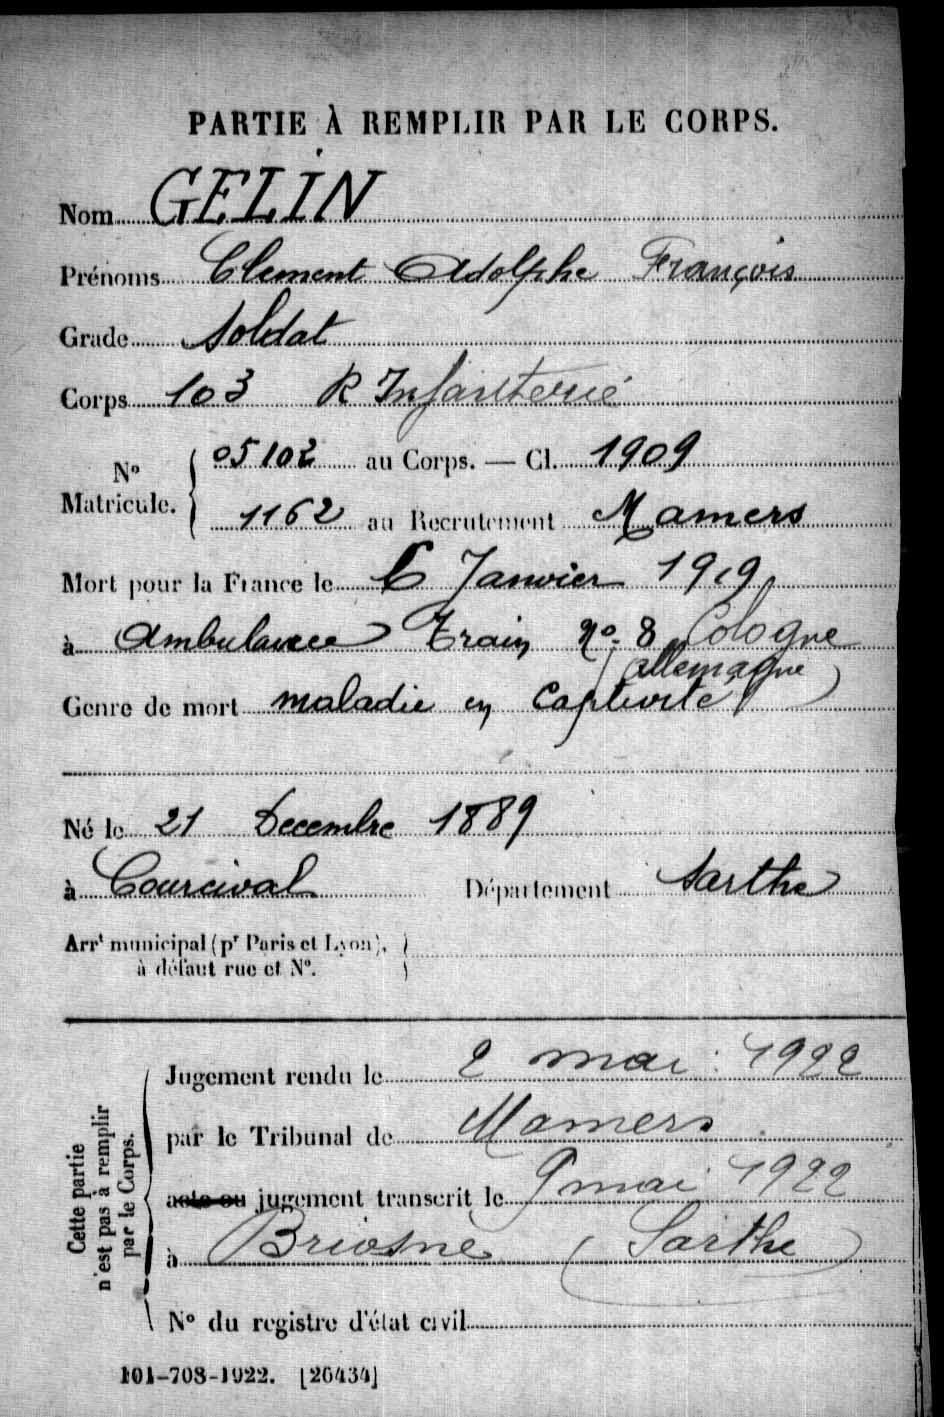 PARTIE À REMPLIR PAR LE CORPS.
Nom GELIN
Prénoms Clement Adolphe François
Grade Soldat
Corps 103 R Infanterie
N° Matricule. 05102 au Corps. — Cl. 1909
1162 au Recrutement Mamers
Mort pour la France le 6 Janvier 1919
à Ambulance Train No 8 Cologne
(allemagne)
Genre de mort maladie en captivité
Né le 21 Decembre 1889
à Courcival Département Sarthe
Arrt municipal (pr Paris et Lyon),
à défaut rue et N°.
Cette partie n'est pas à remplir par le Corps.
Jugement rendu le 2 mai 1922
par le Tribunal de Mamers
acte ou jugement transcrit le 9 mai 1922
à Briosne (Sarthe)
N° du registre d'état civil
101-708-1922. [26434]